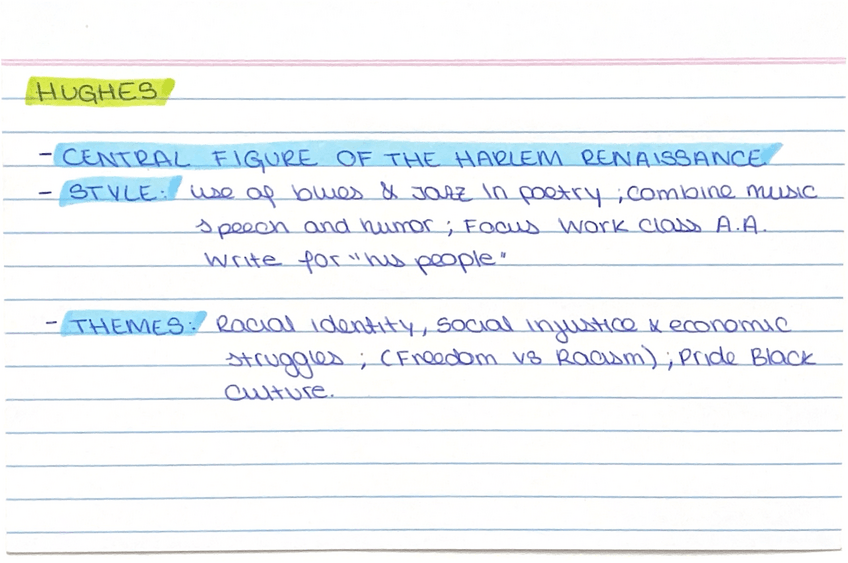 HUGHES
- CENTRAL FIGURE OF THE HARLEM RENAISSANCE
- STYLE: use of blues & JAZZ in poetry ; combine music
speech and humor ; Focus work class A.A.
Write for "his people"
- THEMES: Racial identity, social injustice & economic
struggles ; (Freedom vs Racism) ; Pride Black
Culture.